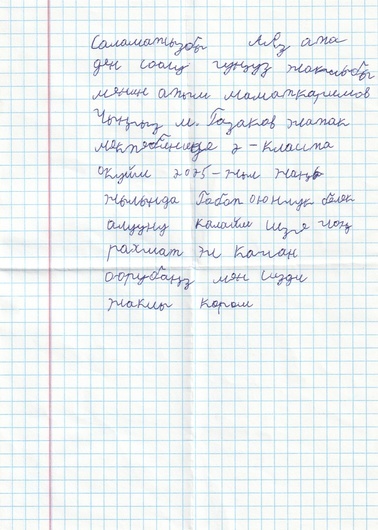 Саламатсызбы Аяз ата
ден соолу гунуз жакшыбы
менин атым маматкаримов
Чынгыз м. Газаков жатак
мектебинде 2-класста
окуйм 2025-жыл жаңы
жылында белек
алууну калайм сизге чоң
рахмат эч качан
оорубаңыз мен сизди
жакшы көрөм